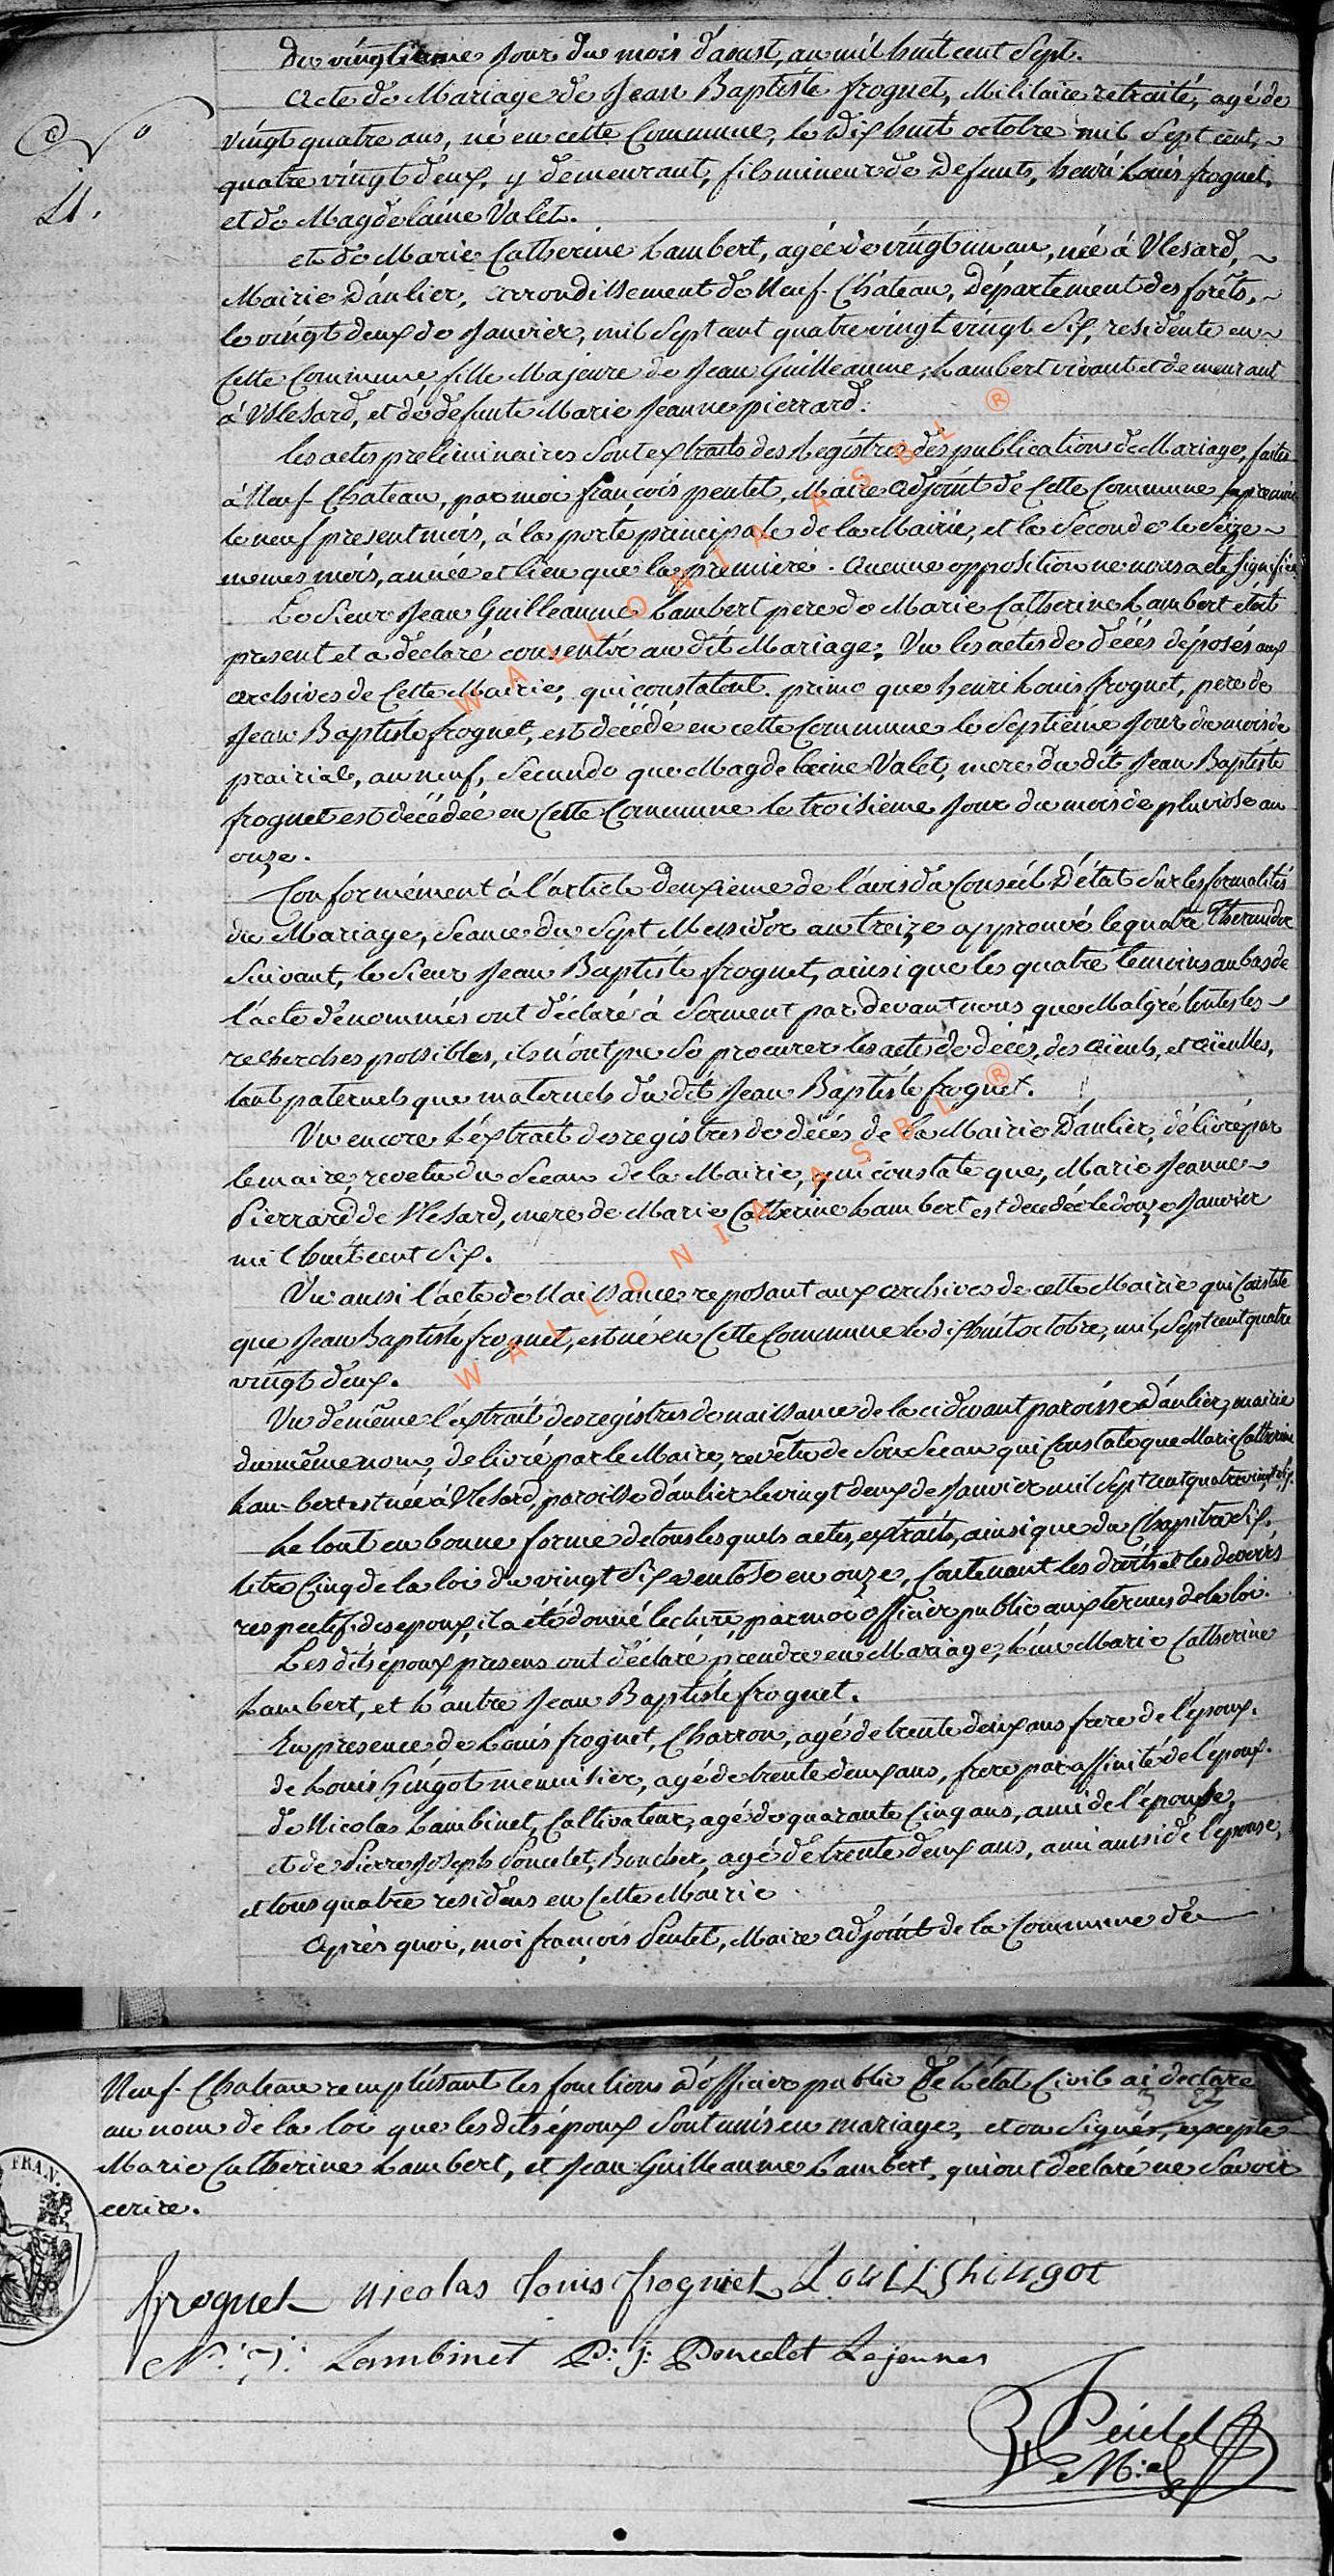 Du vingtieme jour du mois d'aoust, an mil huit cent sept.
Acte de Mariage de Jean Baptiste froguet, Militaire retraité, agé de
vingt quatre ans, né en cette Commune, le dix huit octobre mil sept cent
quatre vingt deux, y demeurant, fils mineur de defunts, henri Louis froguet,
et de Magdelaine Valet.
N°
11.
et de Marie Catherine Lambert, agée de vingt un an, née à Vlesard,
Mairie d'anlier, arrondissement de Neuf-Château, Département des forêts,
le vingt deux de Janvier, mil sept cent quatre vingt vingt six, residente en
cette Commune fille Majeure de Jean Guilleaume, Lambert vivant et demeurant
à Vlesard, et de defunte Marie Jeanne pierrard.
les actes preliminaires sont extraits des Registres des publications de Mariages, faites
à Neuf-Chateau, par moi françois peutet, Maire adjoint de Cette Commune la premiere
le neuf présent mois, à la porte principale de la Mairie, et la seconde le seize
memes mois, année et lieu que la premiere. Aucune opposition ne nous a été signifiée
Le Sieur Jean Guilleaume Lambert pere de Marie Catherine Lambert étoit
present et a déclaré consentir au dit Mariage; Vu les actes de décés déposés aux
archives de Cette Mairie, qui constatent. primo que henri Louis froguet, pere de
Jean Baptiste froguet, est décédé en cette Commune le Septième Jour du mois de
prairial, an neuf, Secundo que Magdelaine Valet, mere du dit Jean Baptiste
froguet est décédée en Cette Commune le troisieme Jour du mois de pluviose an
onze.
Conformément à l'article deuxieme de l'avis du Conseil D'état Sur les formalités
du Mariage, Seance du Sept Messidor an treize approuvé le quatre Thermidor
Suivant, le Sieur Jean Baptiste froguet, ainsi que les quatre temoins au bas de
l'acte dénommés ont déclaré à Serment par devant nous que Malgré toutes les
recherches possibles, ils n'ont pu Se procurer les actes de décés, des aïeuls, et aïeulles,
tant paternels que maternels du dit Jean Baptiste froguet.
Vu encore L'extrait des registres de décés de la Mairie D'anlier, délivré par
le maire, revetu du Sceau de la Mairie, qui constate que, Marie Jeanne
Pierrard de Vlesard, mere de Marie Catherine Lambert est decedée le douze Janvier
mil huit cent Six.
Vu aussi l'acte de Naissance reposant aux archives de cette Mairie qui Constate
que Jean Baptiste froguet, est né en Cette Commune le dix huit octobre, mil Sept cent quatre
vingt deux.
Vu de même l'extrait des registres de naissance de la cidevant paroisse D'anlier, mairie
du même nom, delivré par le Maire, revêtu de Son Sceau qui Constate que Marie Catherine
Lambert est née à Vlesard, paroisse d'anlier le vingt deux de Janvier mil Sept Cent quatre vingt six.
Le tout en bonne forme de tous lesquels actes, extraits, ainsi que du Chapitre Six,
titre Cinq de la loi du vingt Six ventôse an onze, Contenant les droits et les devoirs
respectifs des epoux, il a été donné lecture par moi officier public aux termes de la loi.
Les dits époux presens ont déclaré prendre en Mariage, L'un Marie Catherine
Lambert, et L'autre Jean Baptiste froguet.
En presence de Louis froguet, Charron, agé de trente deux ans frere de l'époux.
de Louis hingot menuisier, agé de trente deux ans, frere par affinité de l'époux.
de Nicolas Lambinet, Cultivateur, agé de quarante Cinq ans, ami de l'épouse,
et de Pierre Joseph Poncelet, Boucher, agé de trente deux ans, ami aussi de l'épouse,
et tous quatre résidens en Cette Mairie
Après quoi, moi françois Peutet, Maire adjoint de la Commune de
Neuf-Chateau remplissant les fonctions d'officier public de L'état Civil ai declaré
au nom de la loi que les dits époux Sont unis en mariage, et on Signés, excepté
Marie Catherine Lambert, et Jean Guilleaume Lambert, qui ont declaré ne Savoir
ecrire.
FRAN.
froguet nicolas louis froguet Louis hingot
N: J: Lambinet P: j: Poncelet Lejeune
Peutet
M:
WALLONIA ASBL ®
WALLONIA ASBL ®